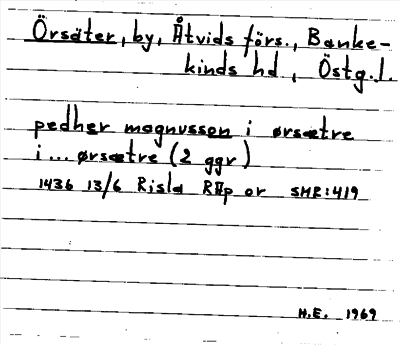 Örsäter, by, Åtvids förs., Banke-
kinds hd, Östg.l.
pedher magnusson i ørsætre
i ... ørsætre (2 ggr)
1436 13/6 Risla RAp or SMR:419
H.E. 1969